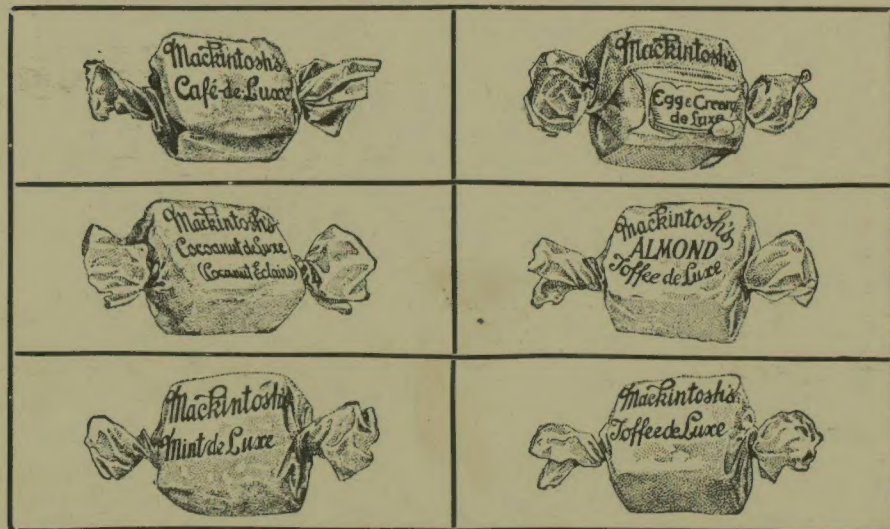 Mackintosh's
Café-de-Luxe
Mackintosh's
Egg & Cream
de Luxe
Mackintosh's
Cocoanut de Luxe
(Cocoanut Éclairs)
Mackintosh's
ALMOND
Toffee de Luxe
Mackintosh's
Mint de Luxe
Mackintosh's
Toffee de Luxe